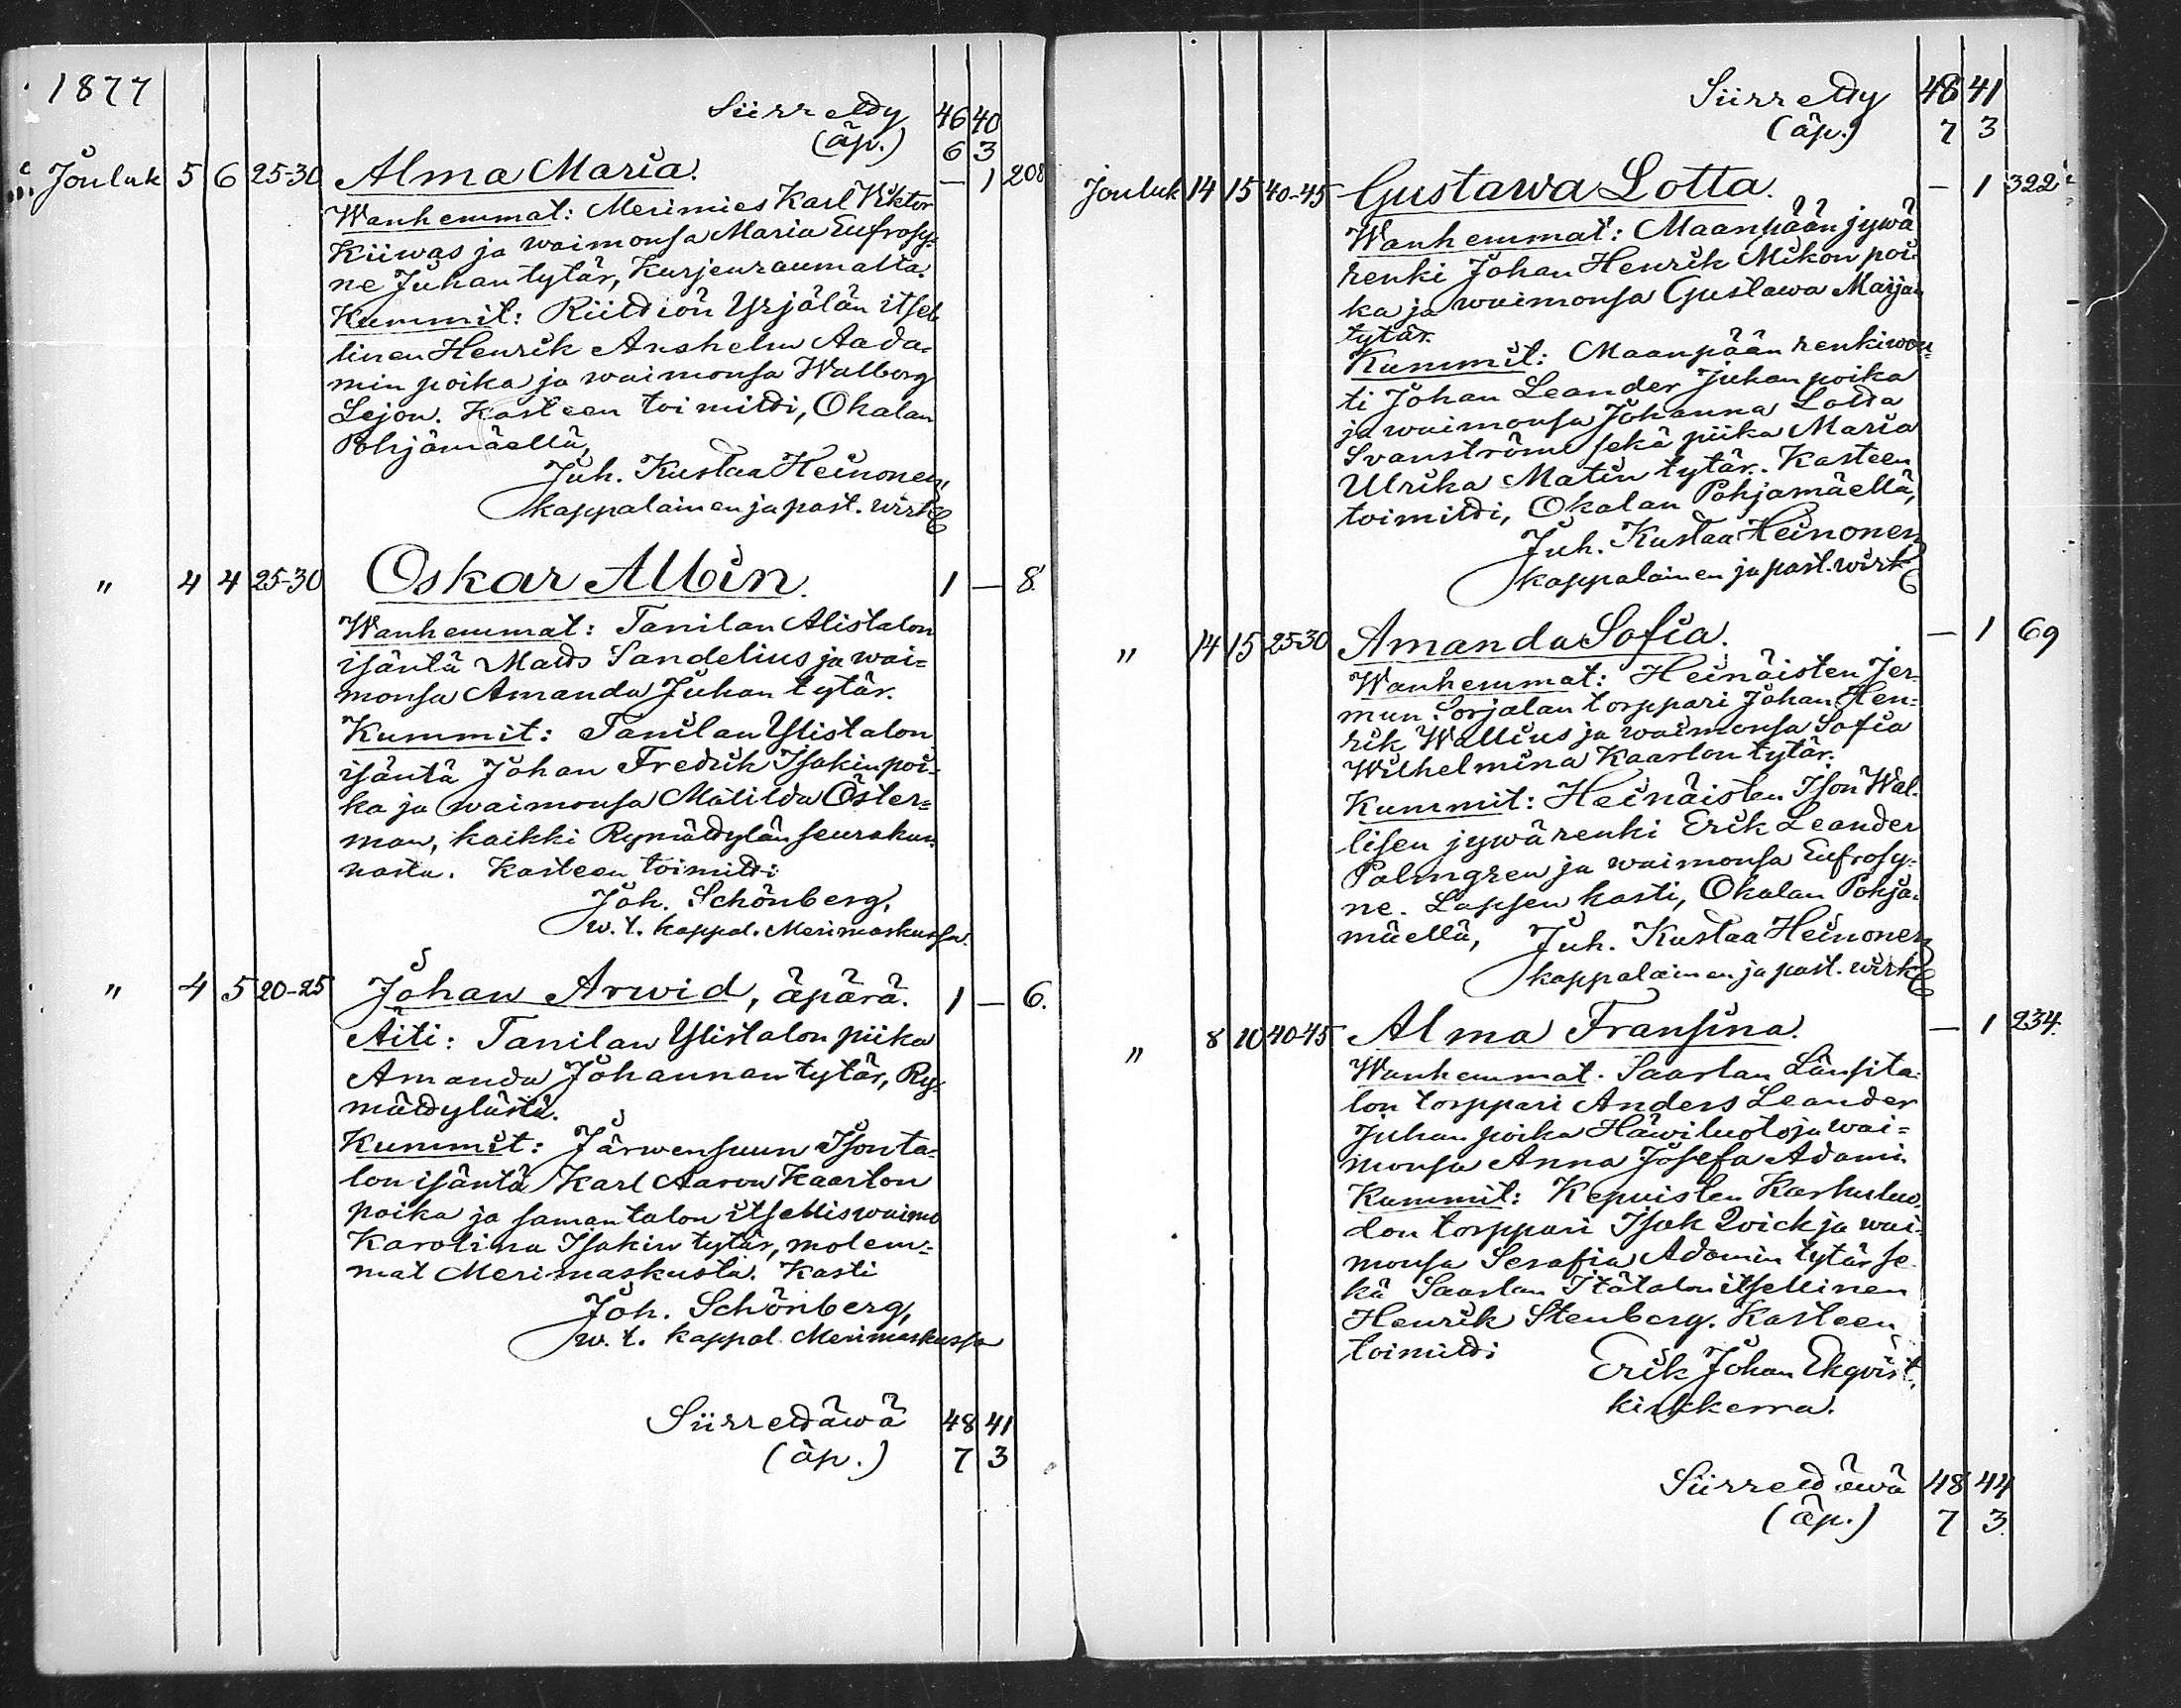 1877
Siirretty 46 40
(äp.) 6 3
Jouluk 5 6 25-30 Alma Maria. — 1 208
Wanhemmat: Merimies Karl Viktor
Kiiwas ja waimonsa Maria Eufrosy=
ne Juhan tytär, Kurjenraumalta.
Kummit: Riittiön Yrjälän itsel
linen Henrik Anshelm Aada=
min poika ja waimonsa Walborg
Lejon. Kasteen toimitti, Okalan
Pohjamäellä,
Juh. Kustaa Heinonen,
kappalainen ja past. wirk
" 4 4 25-30 Oskar Albin. 1 — 8.
Wanhemmat: Tanilan Alistalon
isäntä Matts Sandelius ja wai=
monsa Amanda Juhan tytär.
Kummit: Tanilan Ylistalon
isäntä Johan Fredrik Isakin poi=
ka ja waimonsa Matilda Öster=
man, kaikki Rymättylän seurakun
nasta. Kasteen toimitti
Joh. Schönberg,
w. t. kappal. Merimaskussa.
" 4 5 20-25 Johan Arwid, äpärä. 1 — 6.
Äiti: Tanilan Ylistalon piika
Amanda Johannan tytär, Ry=
mättylästä.
Kummit: Järwensuun Isonta=
lon isäntä Karl Aaron Kaarlon
poika ja saman talon itselliswaimo
Karolina Isakin tytär, molem=
mat Merimaskusta. Kasti
Joh. Schönberg,
w. t. kappal. Merimaskussa
Siirrettäwä 48 41
(äp.) 7 3
Siirretty 48 41
(äp.) 7 3
Jouluk 14 15 40-45 Gustawa Lotta. — 1 322
Wanhemmat: Maanpään jywä
renki Johan Henrik Mikon poi=
ka ja waimonsa Gustawa Marjan
tytär.
Kummit: Maanpään renkiwou=
ti Johan Leander Juhan poika
ja waimonsa Johanna Lotta
Svanström sekä piika Maria
Ulrika Matin tytär. Kasteen
toimitti, Okalan Pohjamäellä,
Juh. Kustaa Heinonen
kappalainen ja past. wirk
" 14 15 25-30 Amanda Sofia. — 1 69
Wanhemmat: Heinäisten Jer=
mun Sorjalan torppari Johan Hen=
rik Wallius ja waimonsa Sofia
Wilhelmina Kaarlon tytär.
Kummit: Heinäisten Ison Wal=
lisen jywärenki Erik Leander
Palmgren ja waimonsa Eufrosy=
ne. Lapsen kasti, Okalan Pohja=
mäellä, Juh. Kustaa Heinonen
kappalainen ja past. wirk
" 8 10 40-45 Alma Fransina. — 1 234.
Wanhemmat. Saarlan Länsita=
lon torppari Anders Leander
Juhan poika Häwiluoto ja wai=
monsa Anna Josefa Adami.
Kummit: Kepuisten Karhuluo=
don torppari Isak Qvick ja wai=
monsa Serafia Adamin tytär se
kä Saarlan Itätalon itsellinen
Henrik Stenberg. Kasteen
toimitti Erik Johan Ekqvist,
kirkkerra.
Siirrettäwä 48 44
(äp.) 7 3.